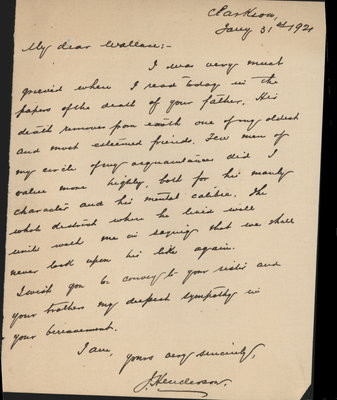 Clarkson,
Jany 31st 1921
My dear Wallace:-
I was very much
grieved when I read today in the
papers of the death of your father. His
death removes from earth one of my oldest
and most esteemed friends. Few men of
my circle of my acquaintances did I
value more highly, both for his manly
character and his mental calibre. The
whole district where he lived will
unite with me in saying that we shall
never look upon his like again.
I wish you to convey to your sister and
your brothers my deepest sympathy in
your bereavement.
I am,
yours very sincerely,
J. Henderson.